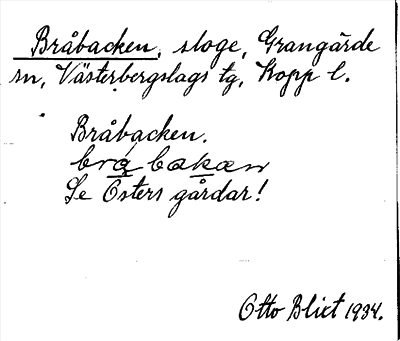 Bråbacken, sloge, Grangärde
sn, Västerbergslags tg, Kopp l.
Bråbacken.
bråbakæn
Se Östers gårdar!
Otto Blixt 1934.